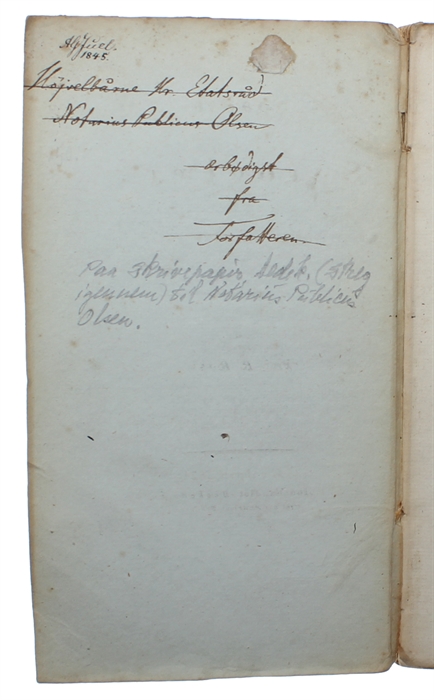 HJuel.
1845.
Höjvelbårne Hr. Etatsråd
Notarius Publicus Olsen
ærbødigst
fra
Forfatteren.
Paa Skrivepapir, dedik. (streg
igennem) til Notarius Publicus
Olsen.